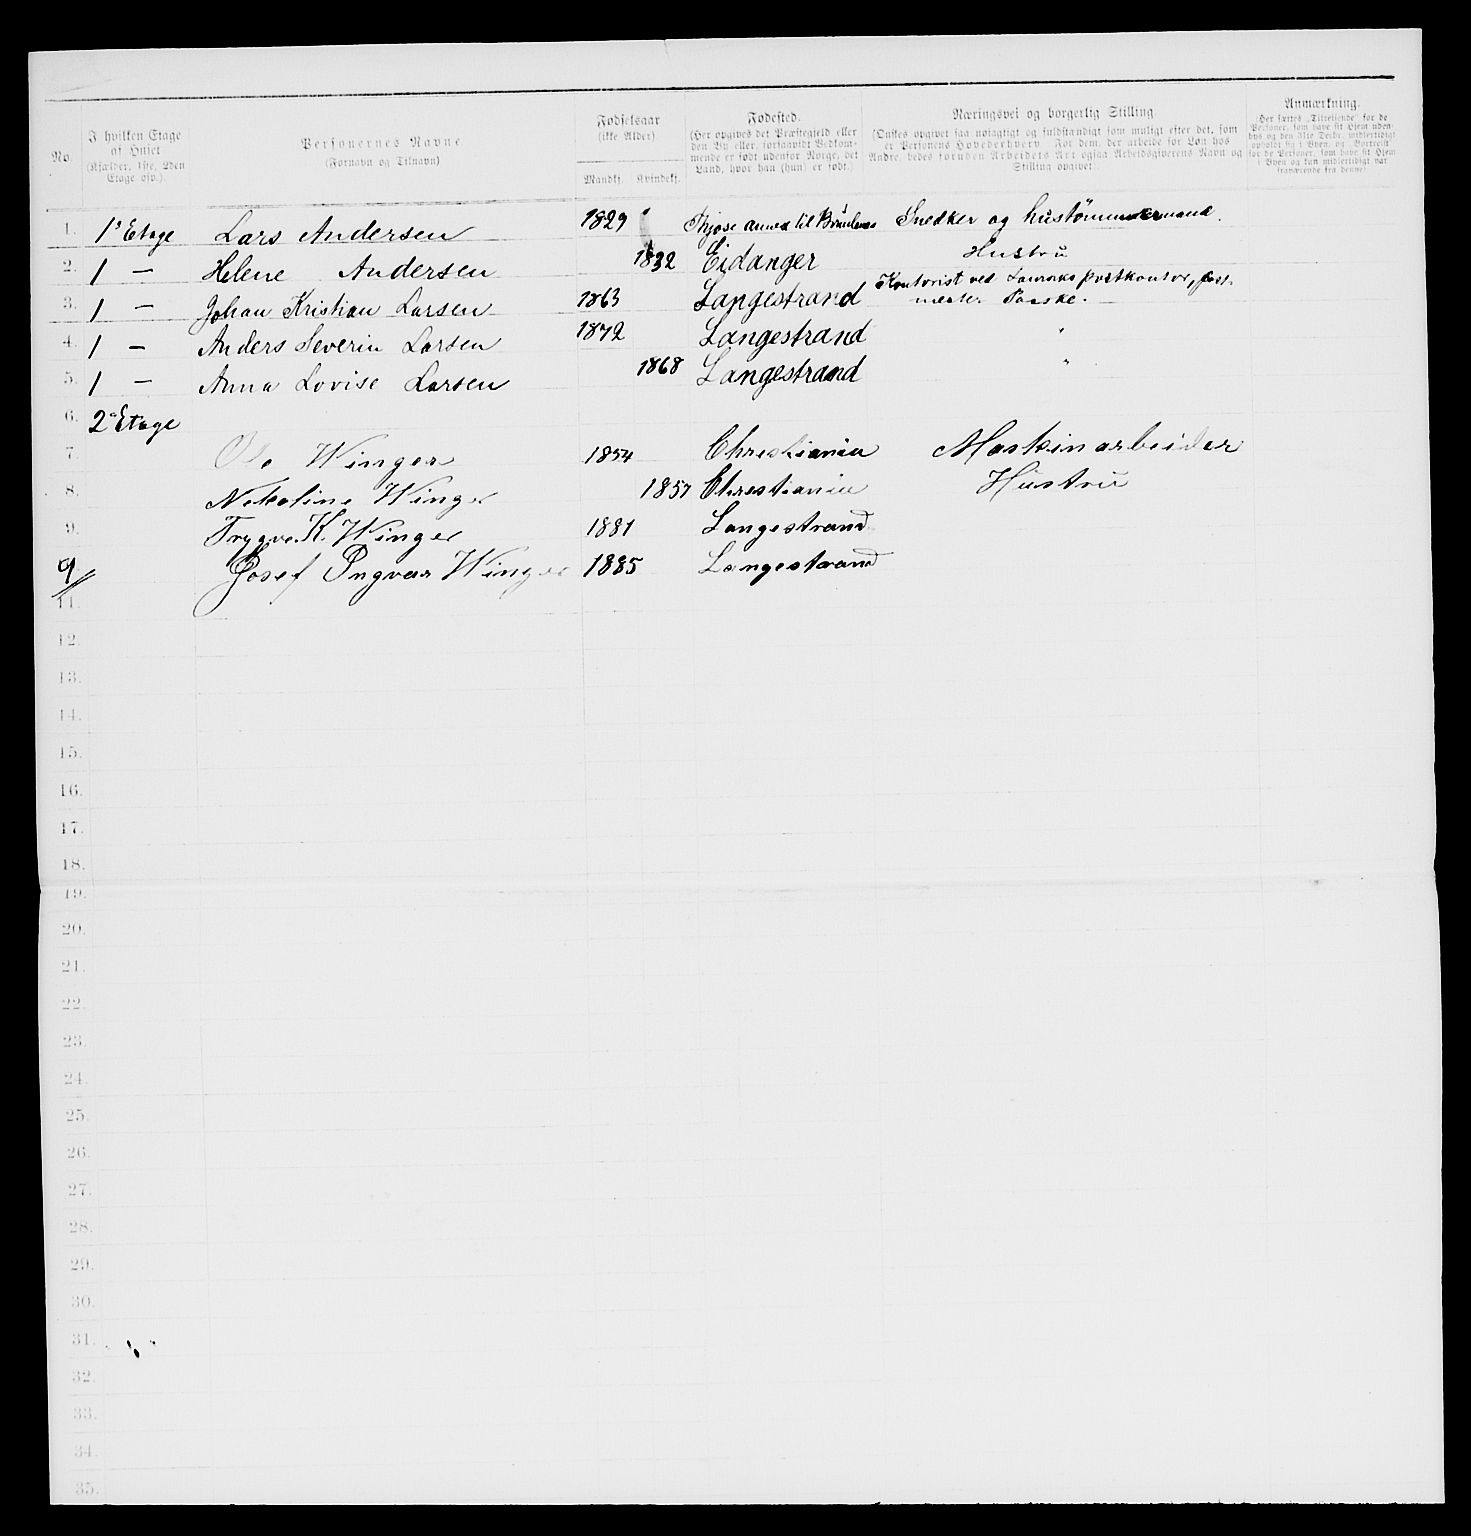 No.
I hvilken Etage af Huset (Kjælder, 1ste, 2den Etage osv.).
Personernes Navne (Fornavn og Tilnavn)
Fødselsaar (ikke Alder).
Mandkj. Kvindekj.
Fødested. (Her opgives det Præstegjeld eller den By eller, forsaavidt Vedkommende er født udenfor Norge, det Land, hvor han (hun) er født.)
Næringsvei og borgerlig Stilling (Ønskes opgivet saa nøiagtigt og fuldstændigt som muligt efter det, som er Personens Hovederhverv. For dem, der arbeide for Løn hos Andre, bedes foruden Arbeidets Art ogsaa Arbeidsgiverens Navn og Stilling opgivet).
Anmærkning. (Her sættes „Tilreisende“ for de Personer, som have sit Hjem udenbys og den 31te Decbr. midlertidigt opholdt sig i Byen, og „Bortreist“ for de Personer, som have sit Hjem i Byen og kun midlertidigt var fraværende fra denne)
1. 1ste Etage Lars Andersen 1829 Kjose annex til Brunlanes Snedker og hustömmermand.
2. 1 — Helene Andersen 1832 Eidanger Hustru
3. 1 — Johan Kristian Larsen 1863 Langestrand Kontorist ved Laurviks postkontor, post-
mester Paaske.
4. 1 — Anders Severin Larsen 1872 Langestrand "
5. 1 — Anna Lovise Larsen 1868 Langestrand "
6. 2 Etage
7. Ole Winger 1854 Christiania Maskinarbeider
8. Nikoline Winger 1857 Christiania Hustru
9. Trygve K. Winger 1881 Langestrand
9 Josef Ingvar Winger 1885 Langestrand
11.
12.
13.
14.
15.
16.
17.
18.
19.
20.
21.
22.
23.
24.
25.
26.
27.
28.
29.
30.
31.
32.
33.
34.
35.